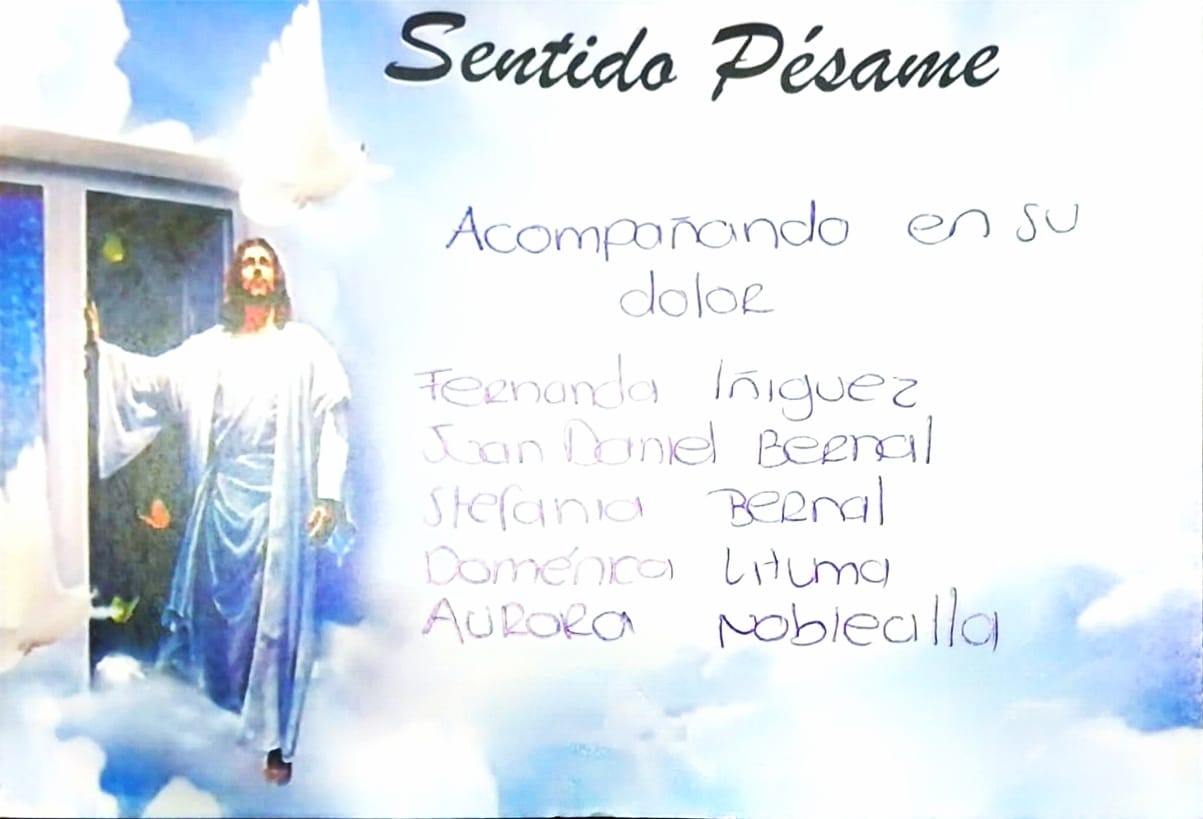 Sentido Pésame
Acompañando en su
dolor
Fernanda Iñiguez
Juan Daniel Bernal
Stefania Bernal
Doménica Lituma
Aurora Noblecilla